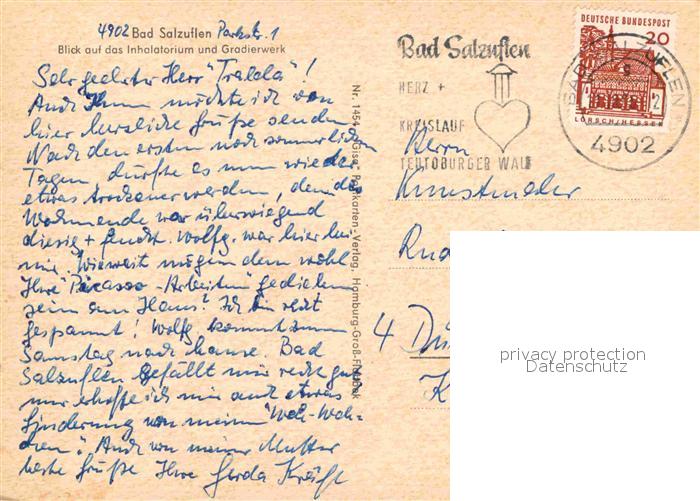 4902 Bad Salzuflen Parkstr. 1
Blick auf das Inhalatorium und Gradierwerk
Sehr geehrter Herr "Tralala"!
Auch Ihnen möchte ich von
hier herzliche Grüße senden.
Nach den ersten noch sommerlichen
Tagen, dürfte es nun wieder
etwas trockener werden, denn das
Wochenende war überwiegend
diesig + feucht. Wolfg. war hier bei
mir. Wieweit mögen denn wohl
Ihre "Picasso-Arbeiten" gediehen
sein am Haus? Ich bin recht
gespannt! Wolfg. kommt zum
Samstag nach Hause. Bad
Salzuflen gefällt mir recht gut
nur erhoffe ich mir auch etwas
Linderung von meinen "Weh-Weh-
chen". Auch von meiner Mutter
beste Grüße Ihre Gerda
Nr. 1454 "Gisa" Postkarten-Verlag, Hamburg-Groß-Flottbek
Bad Salzuflen
HERZ +
KREISLAUF
TEUTOBURGER WALD
DEUTSCHE BUNDESPOST
20
LORSCH/HESSEN
BAD SALZUFLEN
4902
Herrn
Kunstmaler
4 Dü
privacy protection
Datenschutz